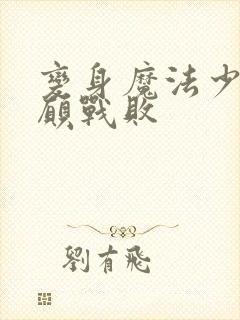 變身魔法少
顧戰敗
劉有飛